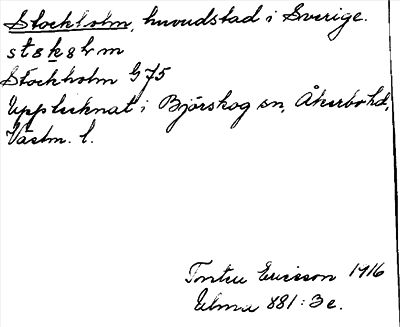 Stockholm, huvudstad i Sverige.
stskslm
Stockholm G 75
Upptecknat i Björskog sn, Åkerbo hd,
Västm. l.
Torsten Ericson 1916
Ulma 881:3 e.